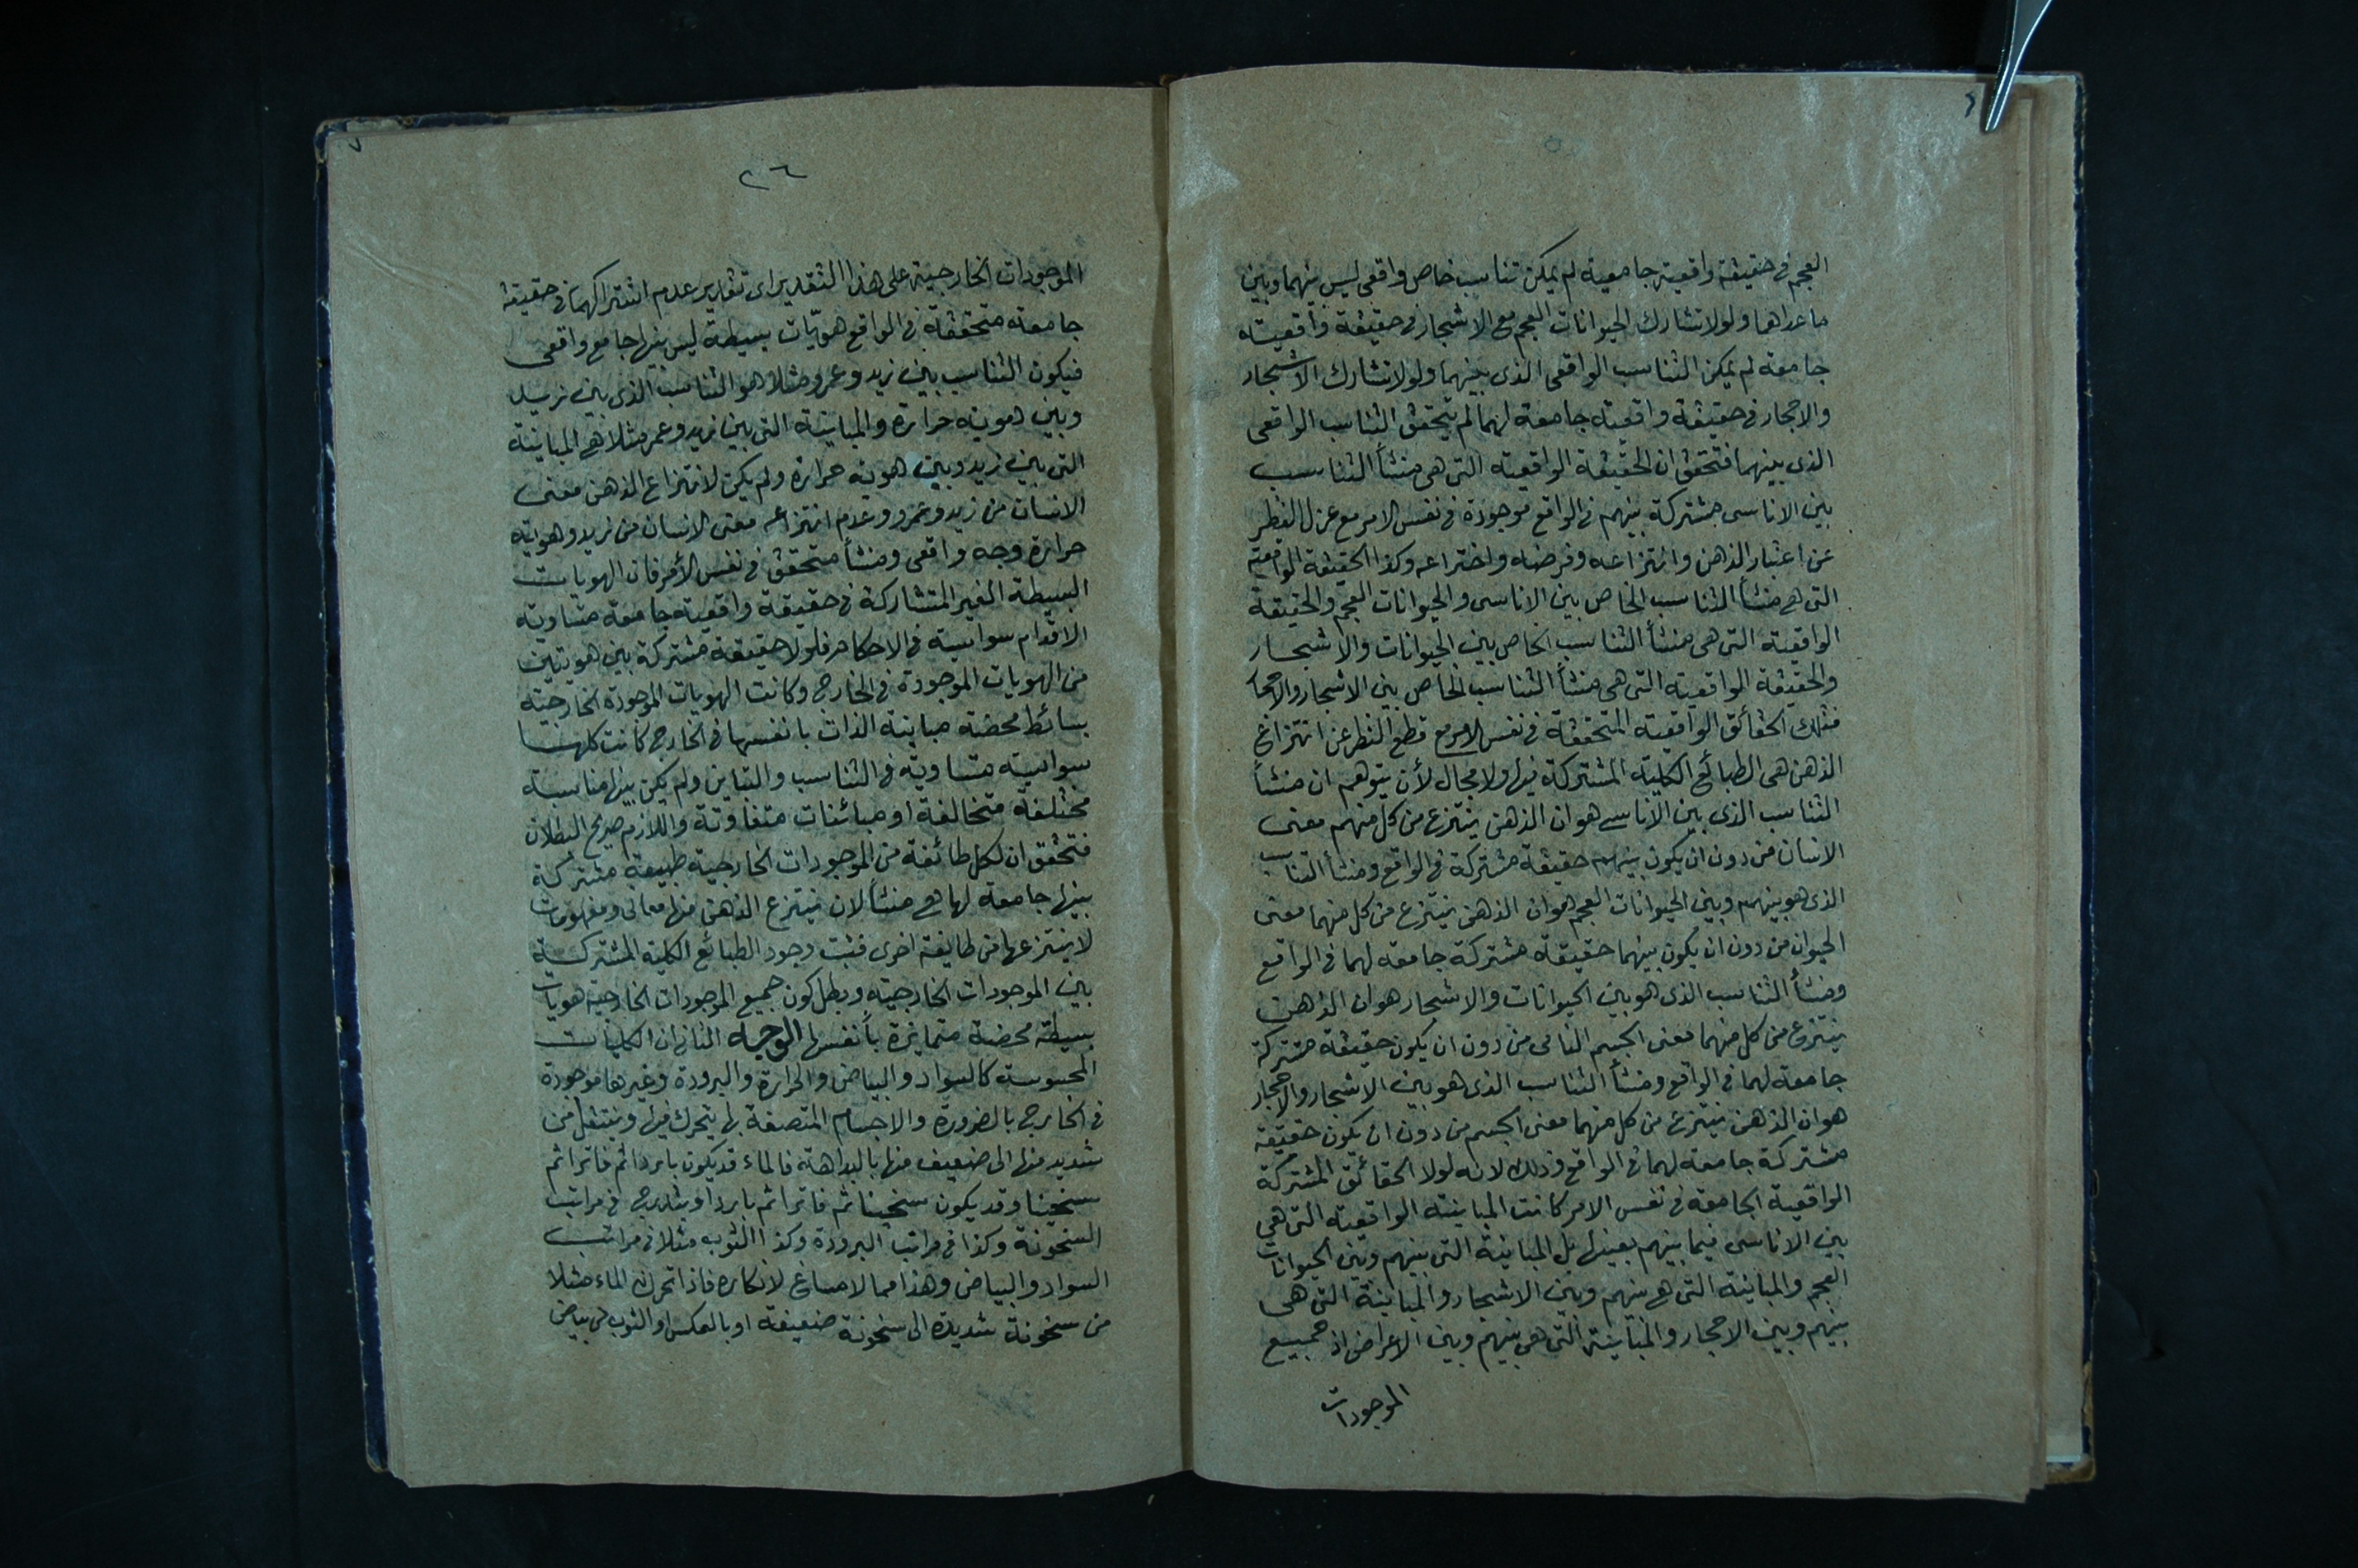 العجم في حقيقة واقعية جامعية لم يمكن تناسب خاص واقعي ليس بينهما وبين
ما عداها ولولا تشارك الحيوانات العجم مع الاشجار في حقيقة واقعيته
جامعة لم يمكن التناسب الواقعي الذى بينهما ولولا تشارك الاشجار
والاحجار في حقيقة واقعية جامعة لهما لم يتحقق التناسب الواقعي
الذى بينهما فتحقق ان الحقيقة الواقعية التى هى منشأ التناسب
بين الاناسى مشتركة بينهم في الواقع موجودة في نفس الامر مع عزل النظر
عن اعتبار الذهن وانتزاعه وفرضه واختراعه وكذا الحقيقة الواقعية
التى هي منشأ التناسب الخاص بين الاناسى والحيوانات العجم والحقيقة
الواقعية التى هى منشأ التناسب الخاص بين الحيوانات والاشجار
والحقيقة الواقعية التى هى منشأ التناسب الخاص بين الاشجار والاحجار
فتلك الحقائق الواقعية المتحققة في نفس الامر مع قطع النظر عن انتزاع
الذهن هى الطبائع الكلية المشتركة فيها ولا مجال لأن يتوهم ان منشأ
التناسب الذى بين الاناسے هو ان الذهن ينتزع من كل منهم معنى
الانسان من دون ان يكون بينهم حقيقة مشتركة في الواقع ومنشأ التناسب
الذى هو بينهم وبين الحيوانات العجم هو ان الذهن ينتزع من كل منهما معنى
الحيوان من دون ان يكون بينهما حقيقة مشتركة جامعة لهما في الواقع
ومنشأ التناسب الذى هو بين الحيوانات والاشجار هو ان الذهن
ينتزع من كل منهما معنى الجسم النامى من دون ان يكون حقيقة مشتركة
جامعة لهما في الواقع ومنشأ التناسب الذى هو بين الاشجار والاحجار
هو ان الذهن ينتزع من كل منهما معنى الجسم من دون ان يكون حقيقة
مشتركة جامعة لهما في الواقع وذلك لانه لولا الحقائق المشتركة
الواقعية الجامعة في نفس الامر كانت المباينة الواقعية التى هي
بين الاناسى فيما بينهم بعينها بل المباينة التى بينهم وبين الحيوانات
العجم والمباينة التى هي بينهم وبين الاشجار والمباينة التى هى
بينهم وبين الاحجار والمباينة التى هي بينهم وبين الاعراض اذ جميع
الموجودات
٢٦
الموجودات الخارجية على هذا التقدير اى تقدير عدم اشتراكهما في حقيقة
جامعة متحققة في الواقع هويّات بسيطة ليس بينها جامع واقعى
فيكون التناسب بين زيد وعمرو مثلا هو التناسب الذى بين زيد
وبين هوية حرارة والمباينة التى بين زيد وعمر مثلا هي المباينة
التى بين زيد وبين هوية حرارة ولم يكن لانتزاع الذهن معنى
الانسان من زيد وعمرو وعدم انتزاعه معنى الانسان من زيد وهوية
حرارة وجه واقعى ومنشأ متحقق في نفس الأمر فان الهويات
البسيطة الغير المتشاركة في حقيقة واقعية جامعة متساوية
الاقدام سواسية في الاحكام فلولا حقيقة مشتركة بين هويتين
من الهويات الموجودة في الخارج وكانت الهويات الموجودة الخارجية
بسائط محضة مباينة الذات بانفسها في الخارج كانت كلها
سواسية متساوية في التناسب والتباين ولم يكن بينها مناسبة
مختلفة متخالفة او مبائنات متفاوتة واللازم صريح البطلان
فتحقق ان لكل طائفة من الموجودات الخارجية طبيعة مشتركة
بينها جامعة لها هي منشأ لان ينتزع الذهن منها معانى ومفهومات
لا ينتزعها من طايفة اخرى فثبت وجود الطبائع الكلية المشتركة
بين الموجودات الخارجية وبطل كون جميع الموجودات الخارجية هويات
بسيطة محضة متمايزة بأنفسها الوجه الثانى ان الكليات
المحسوسة كالسواد والبياض والحرارة والبرودة وغيرها موجودة
في الخارج بالضرورة والاجسام المتصفة بها يتحرك فيها وينتقل من
شديد منها الى ضعيف منها بالبداهة فالماء قد يكون باردا ثم فاترا ثم
سخينا وقد يكون سخينا ثم فاترا ثم باردا ويتدرج في مراتب
السخونة وكذا في مراتب البرودة وكذا الثوب مثلا في مراتب
السواد والبياض وهذا مما لا مساغ لانكاره فاذا تحرك الماء مثلا
من سخونة شديدة الى سخونة ضعيفة او بالعكس او الثوب من بياض